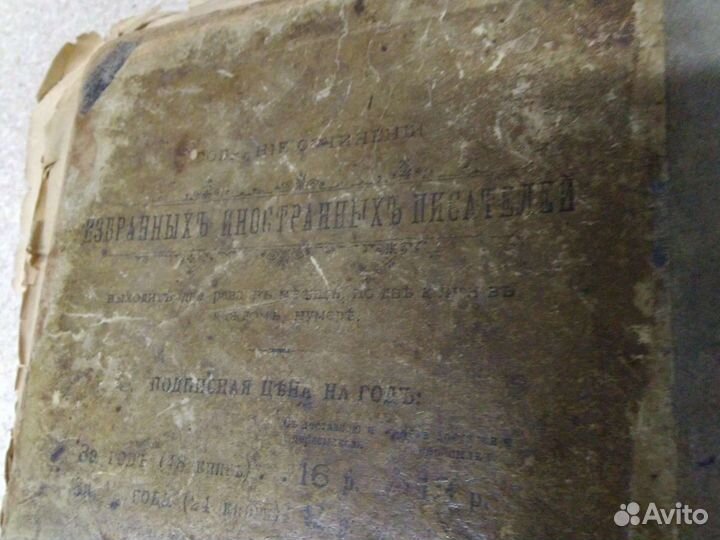 СОБРАНІЕ СОЧИНЕНІЙ
ИЗБРАННЫХЪ ИНОСТРАННЫХЪ ПИСАТЕЛЕЙ
выходитъ два раза въ мѣсяцъ, по двѣ книги въ
каждомъ нумерѣ.
ПОДПИСНАЯ ЦѢНА НА ГОДЪ:
Съ доставкою и
пересылкой.
За годъ (48 книгъ) . . 16 р. 14 р.
года (24 книги)
Avito